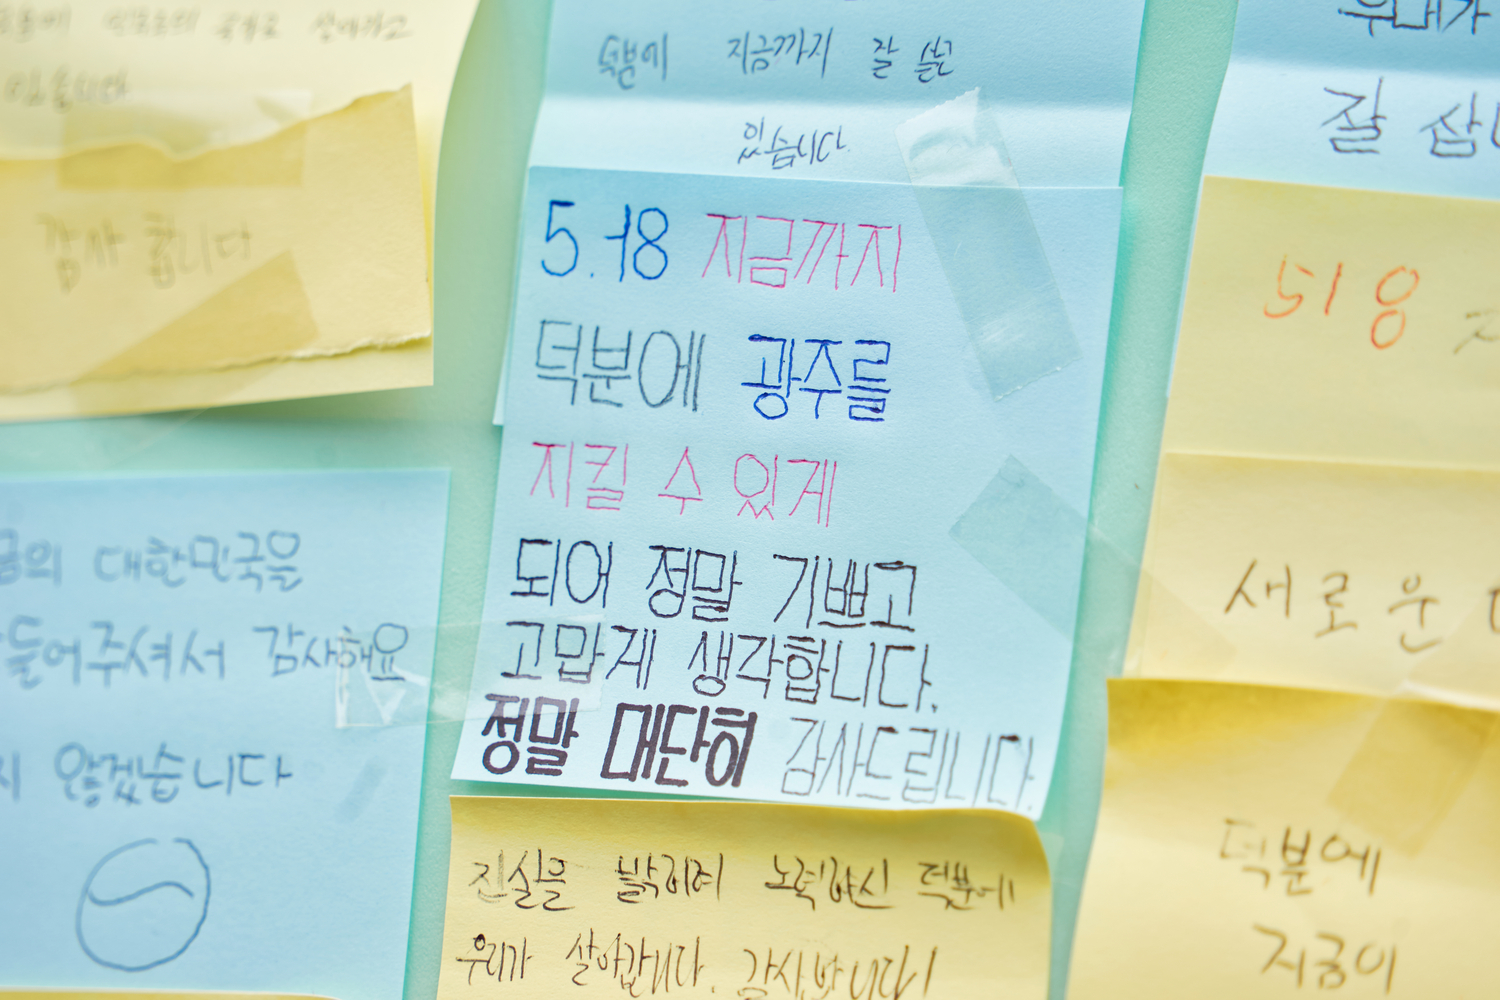 감사 합니다
금의 대한민국을
들어주셔서 감사해요
지 않겠습니다
덕분에 지금까지 잘 살고
있습니다.
5.18 지금까지
덕분에 광주를
지킬 수 있게
되어 정말 기쁘고
고맙게 생각합니다.
정말 대단히 감사드립니다.
진실을 밝히려 노력하신 덕분에
우리가 살아갑니다. 감사합니다!
우리가
잘 삽니
518 지
새로운
덕분에
지금이